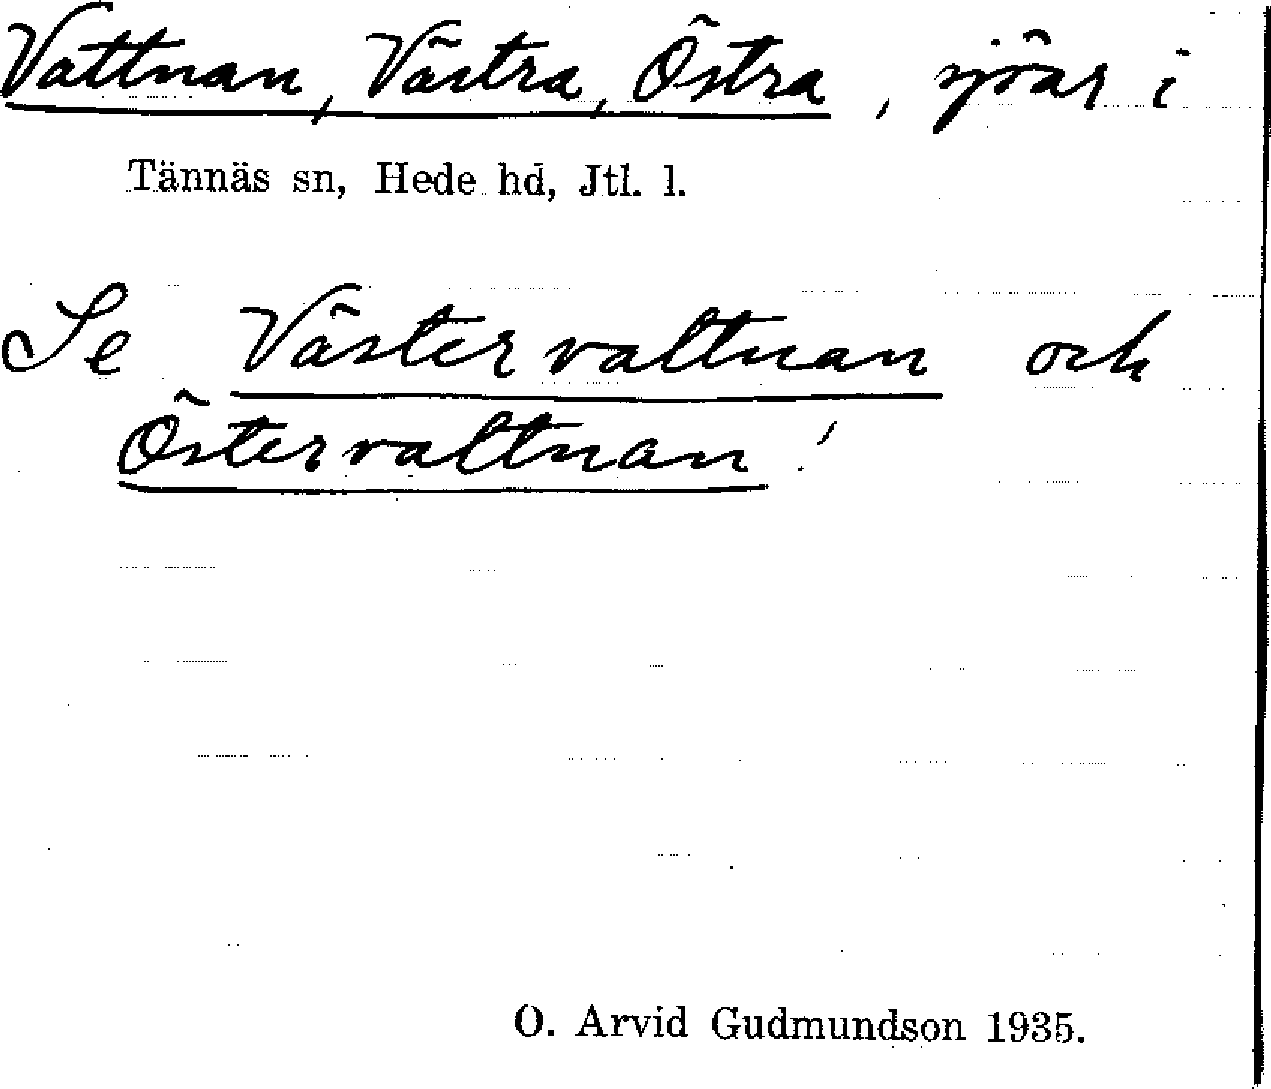 Vattnan, Västra, Östra, sjöar i
Tännäs sn, Hede hd, Jtl. l.
Se Västervattnan och
Östervattnan!
O. Arvid Gudmundson 1935.